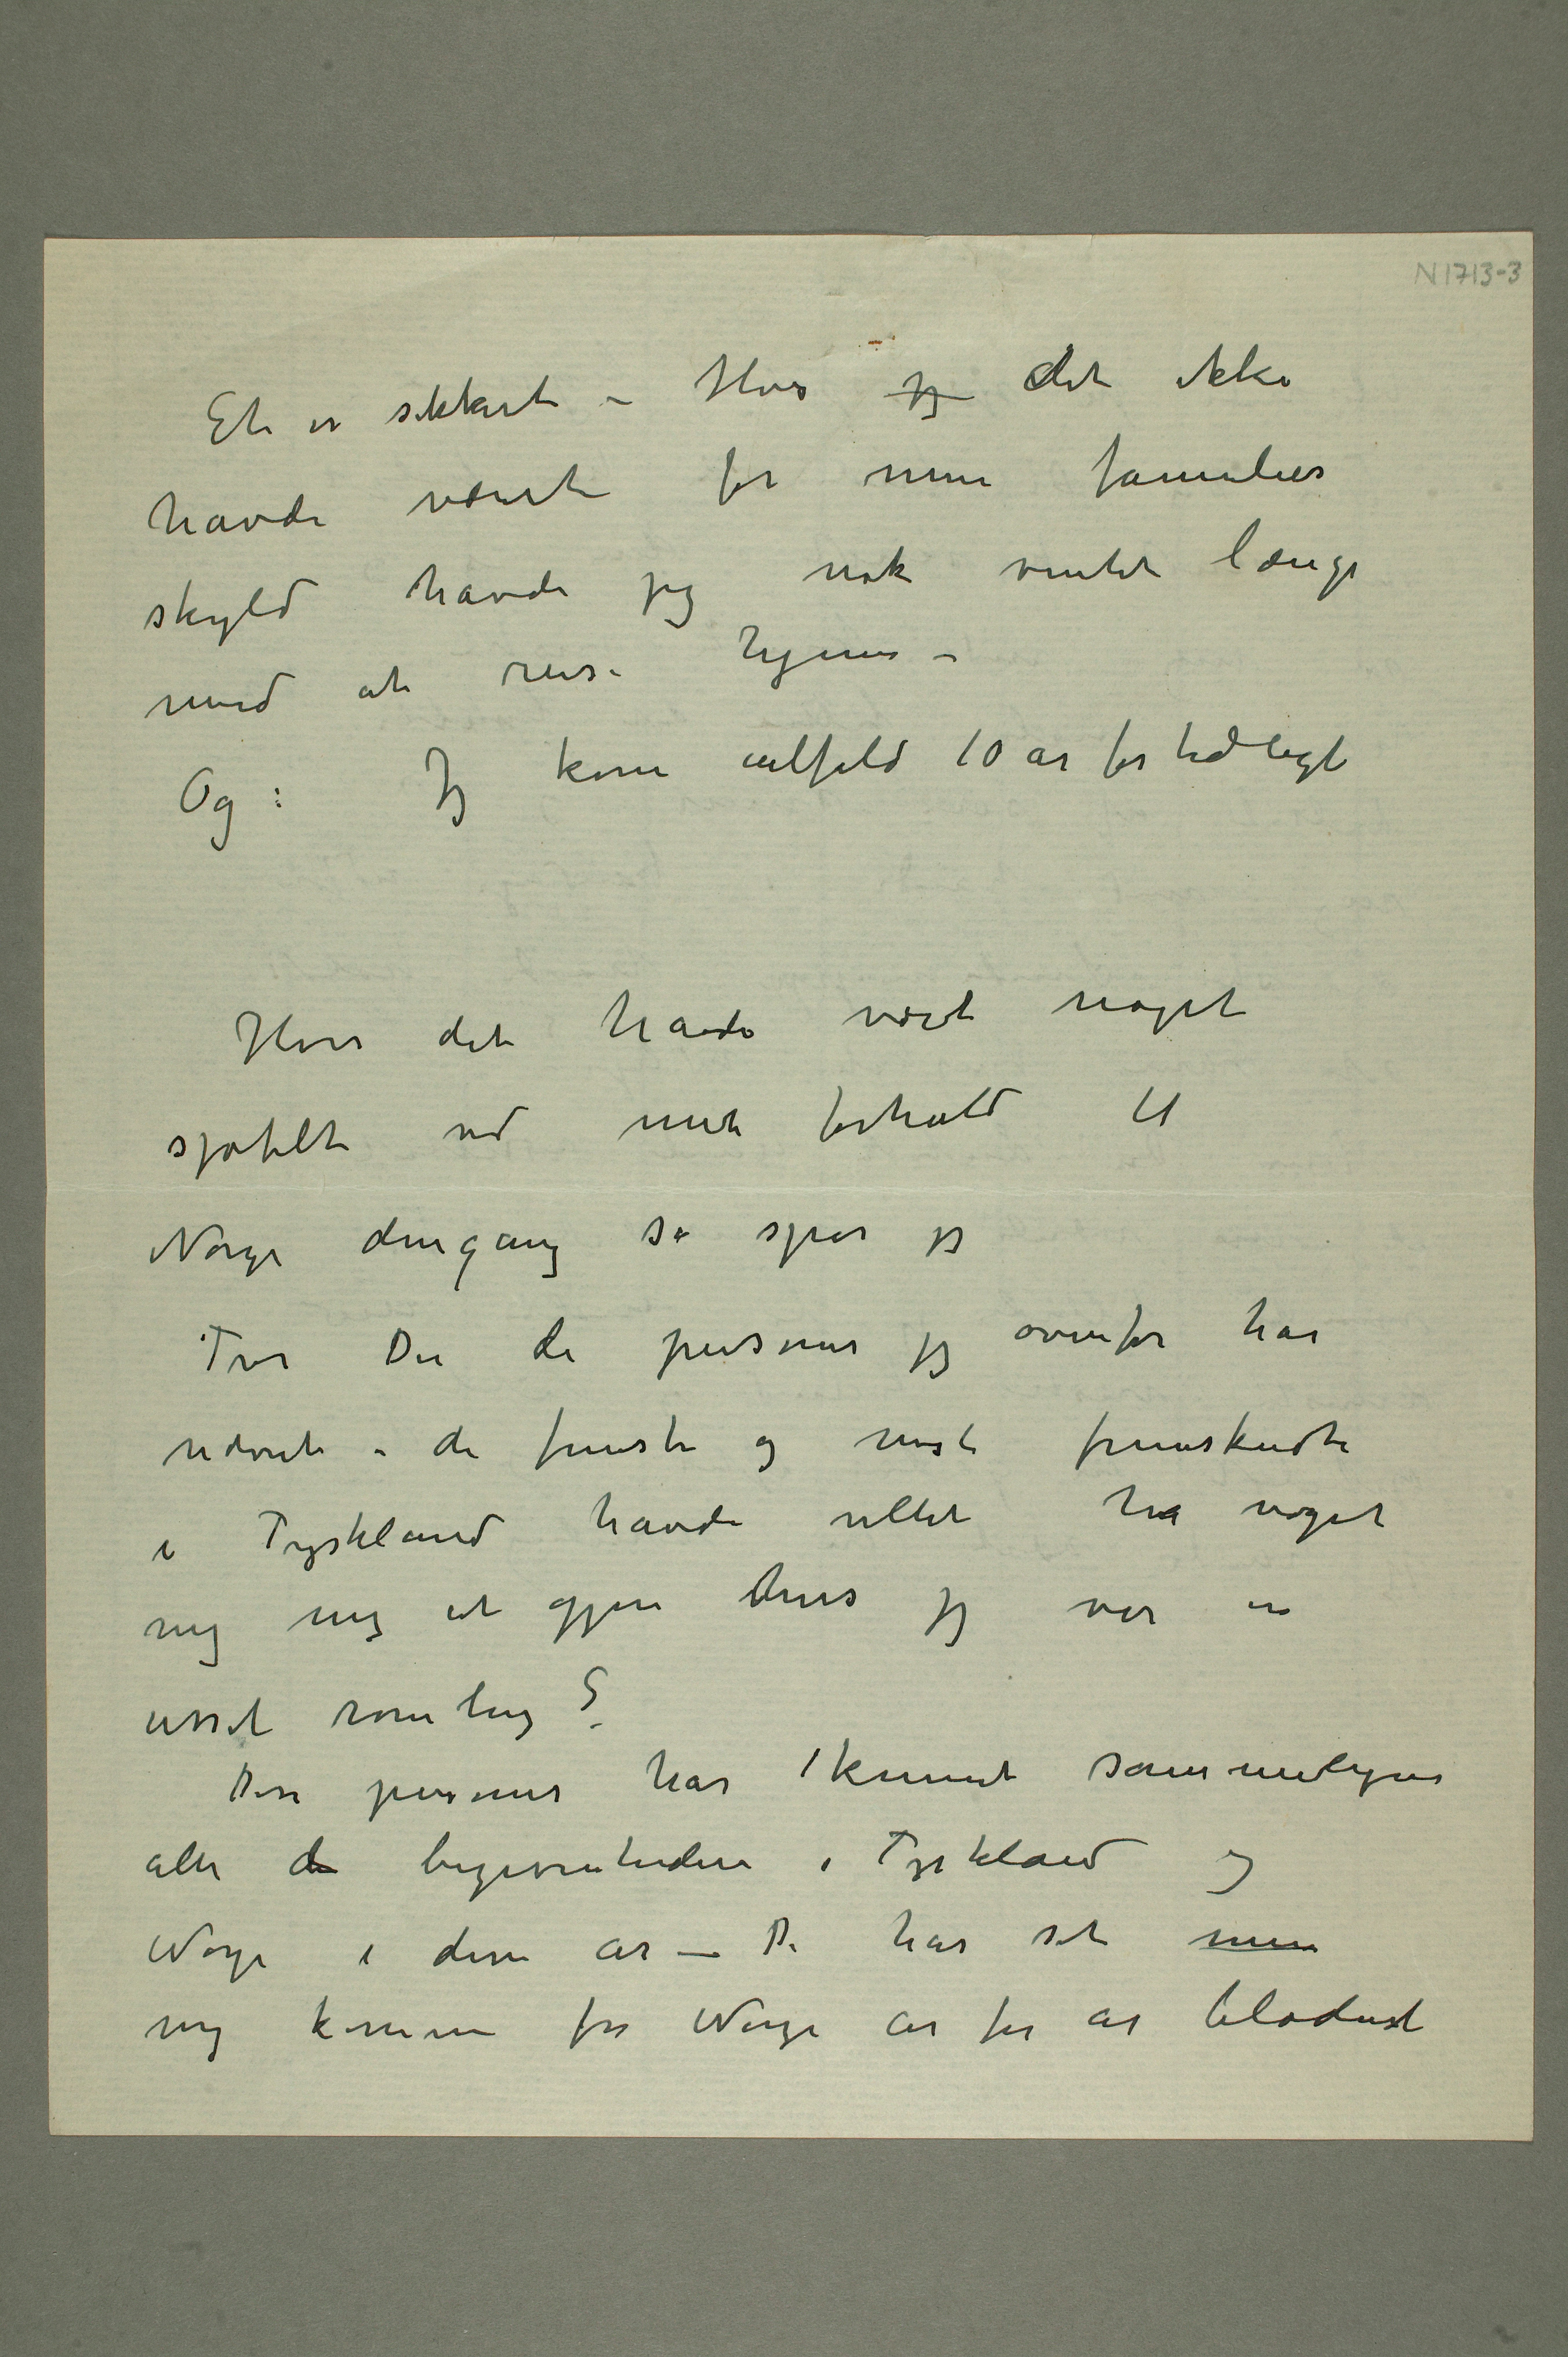 N 1713-3
Et er sikkert – Hvis jeg det ikke
havde været for min families
skyld havde jeg nok ventet længe
med at reise hjem –
Og: Jeg kom ialfald 10 år for tidligt
Hvis det havde vært noget
sjofelt ved mit forhold til
Norge dengang så spør jeg
Tror De de personer jeg ovenfor har
nævnt – de fineste og mest fremskudte
i Tyskland havde villet ha noget
mig at gjøre hvis jeg var en
ussel rømling?
Disse personer har kunnet sammenligne
alle de begivenheder i Tyskland og
Norge i disse år – De har set min
mig komme fra Norge år for år